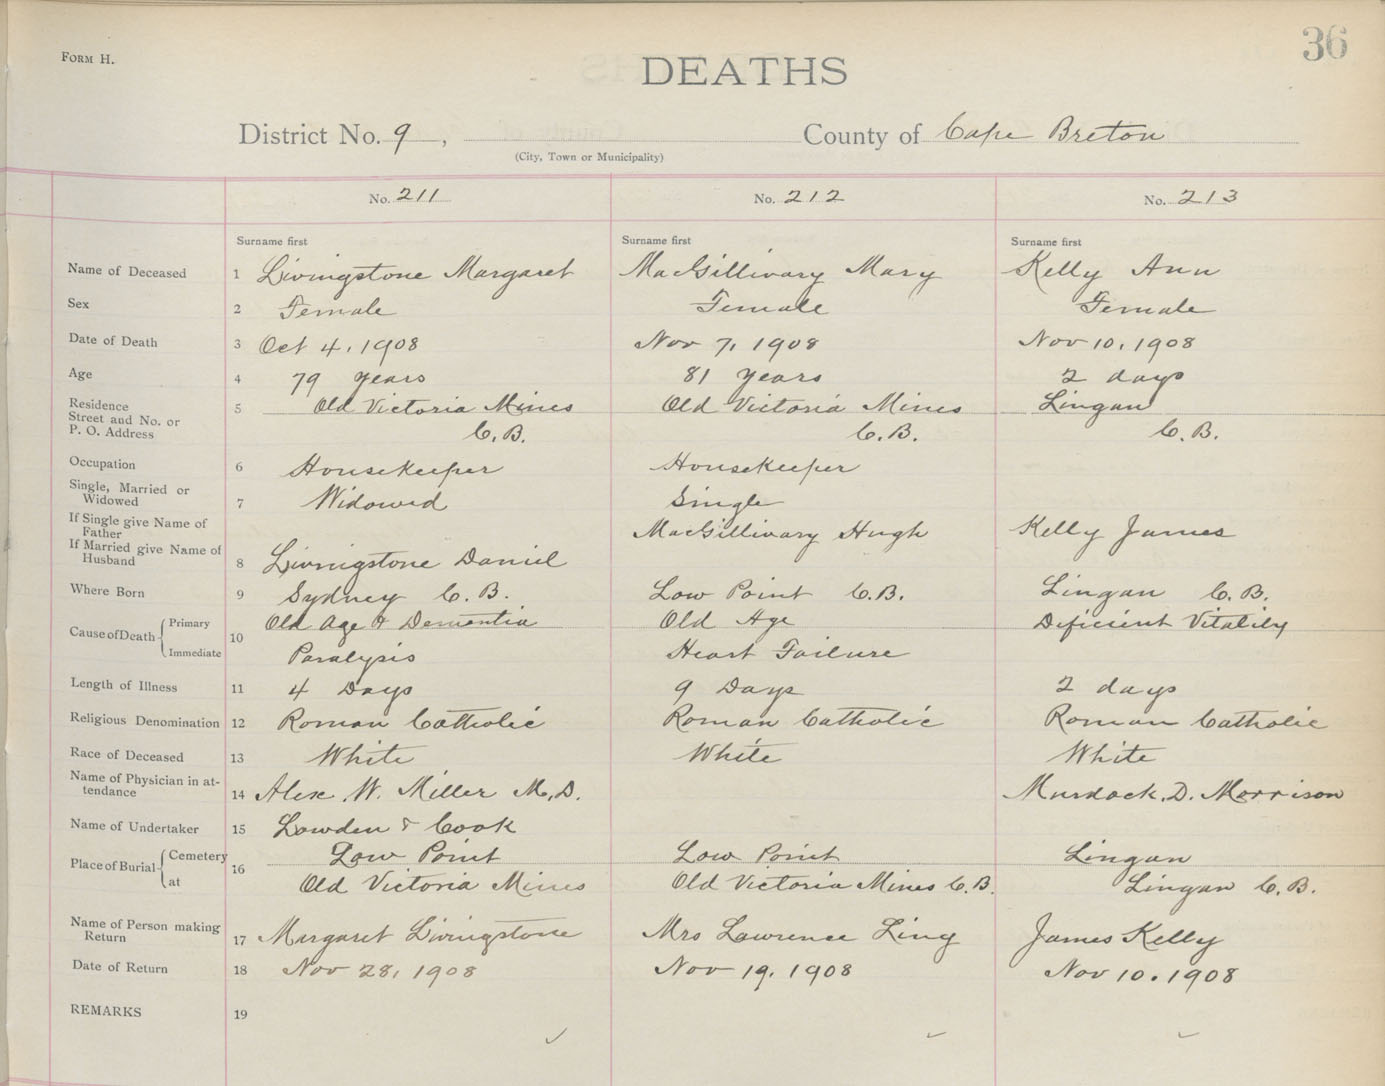 36
FORM H.
DEATHS
District No. 9, County of Cape Breton
(City, Town or Municipality)
No. 211 No. 212 No. 213
Surname first Surname first Surname first
Name of Deceased 1 Livingstone Margaret MacGillivary Mary Kelly Ann
Sex 2 Female Female Female
Date of Death 3 Oct 4, 1908 Nov 7, 1908 Nov 10, 1908
Age 4 79 years 81 years 2 days
Residence 5 Old Victoria Mines Old Victoria Mines Lingan
Street and No. or
P. O. Address C.B. C.B. C.B.
Occupation 6 Housekeeper Housekeeper
Single, Married or
Widowed 7 Widowed Single
If Single give Name of
Father MacGillivary Hugh Kelly James
If Married give Name of
Husband 8 Livingstone Daniel
Where Born 9 Sydney C.B. Low Point C.B. Lingan C.B.
Cause of Death 10 Primary Old Age & Dementia Old Age Deficient Vitality
Immediate Paralysis Heart Failure
Length of Illness 11 4 Days 9 Days 2 days
Religious Denomination 12 Roman Catholic Roman Catholic Roman Catholic
Race of Deceased 13 White White White
Name of Physician in at-
tendance 14 Alex. W. Miller M.D. Murdock. D. Morrison
Name of Undertaker 15 Lowden & Cook
Place of Burial 16 Cemetery Low Point Low Point Lingan
at Old Victoria Mines Old Victoria Mines C.B. Lingan C.B.
Name of Person making
Return 17 Margaret Livingstone Mrs Lawrence Ling James Kelly
Date of Return 18 Nov 28, 1908 Nov 19, 1908 Nov 10. 1908
REMARKS 19